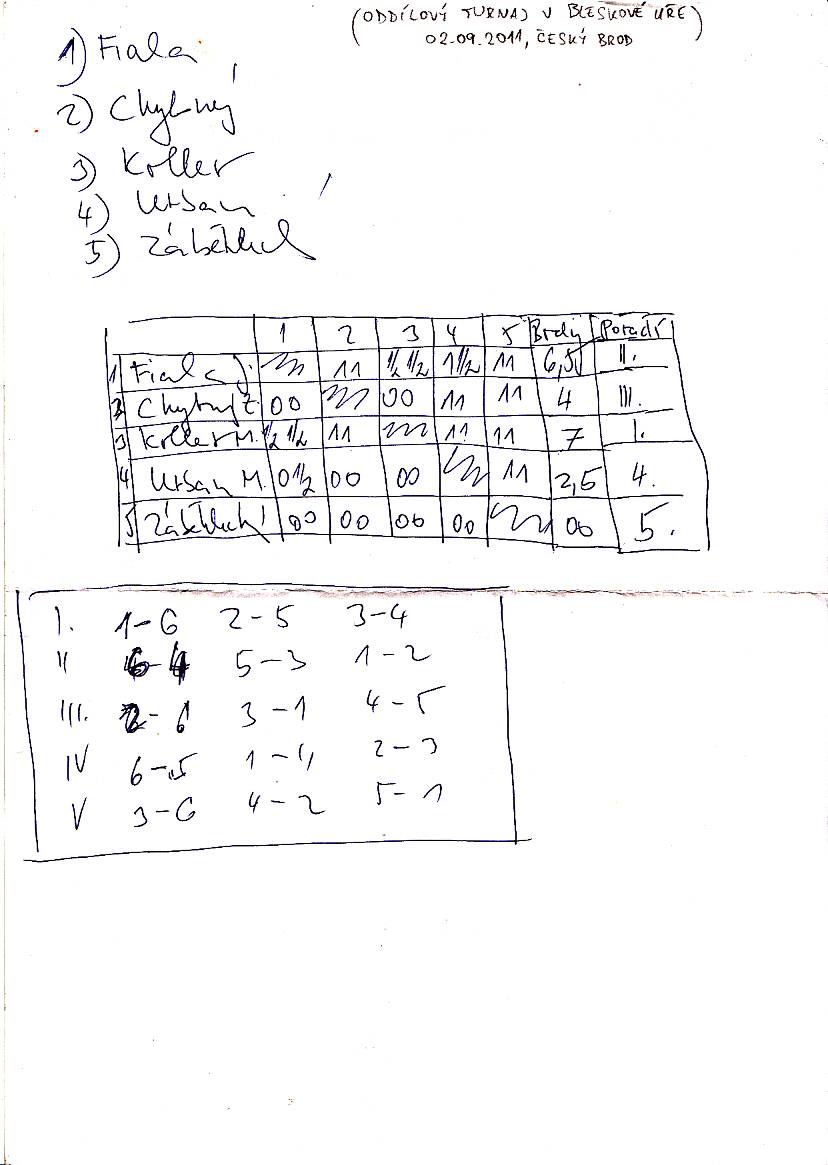 (ODDÍLOVÝ TURNAJ V BLESKOVÉ HŘE)
02.09.2011, ČESKÝ BROD
1) Fiala
2) Chybný
3) Koller
4) Urban
5)
1 2 3 4 5 Body Pořadí
1 Fiala J. 11 ½ ½ 1 ½ 11 6,5 II.
2 Chybný 00 00 11 11 4 III.
3 Koller M. ½ ½ 11 11 11 7 I.
4 Urban M. 0 ½ 00 00 11 2,5 4.
5 00 00 00 00 00 5.
I. 1-6 2-5 3-4
II 6-4 5-3 1-2
III. 2-6 3-1 4-5
IV 6-5 1-4 2-3
V 3-6 4-2 5-1